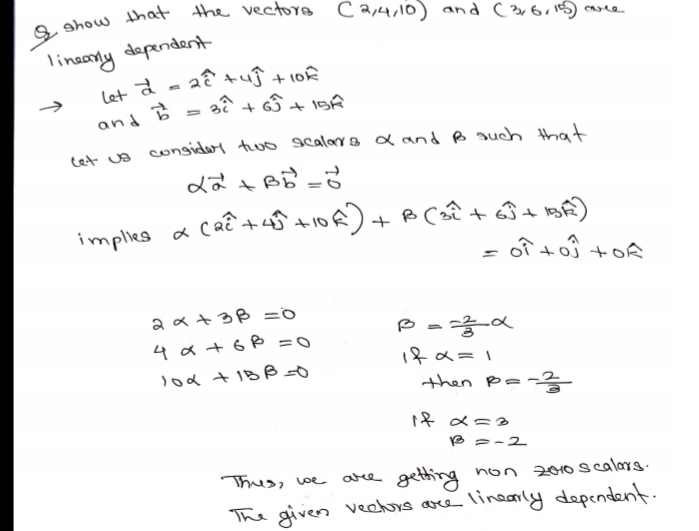 Q show that the vectors (2,4,10) and (3,6,15) are
linearly dependent
→ let a⃗ = 2î + 4ĵ + 10k̂
and b⃗ = 3î + 6ĵ + 15k̂
Let us consider two scalars α and β such that
αa⃗ + βb⃗ = 0⃗
implies α (2î + 4ĵ + 10k̂) + β (3î + 6ĵ + 15k̂)
= 0î + 0ĵ + 0k̂
2α + 3β = 0
4α + 6β = 0
10α + 15β = 0
β = -2/3 α
if α = 1
then β = -2/3
if α = 3
β = -2
Thus, we are getting non zero scalars.
The given vectors are linearly dependent.